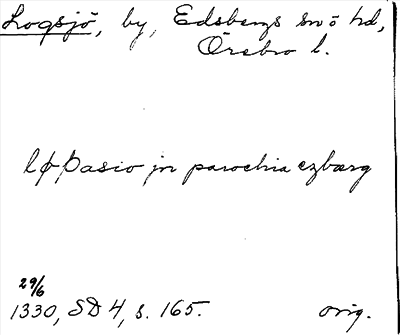 Logsjö, by, Edsbergs sn ö hd,
Örebro l.
lφþasio jn parochia ezbærg
29/6
1330, SD 4, s. 165. orig.